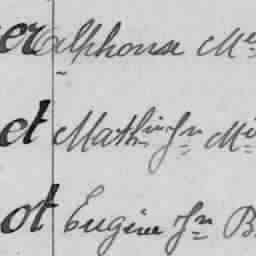 er Alphonse Me
et Mathin Jn Mi
ot Eugène Jn B